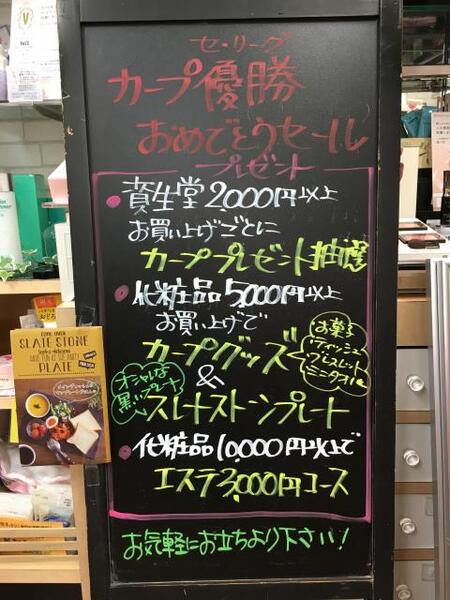 セ・リーグ
カープ優勝
おめでとうセール
プレゼント
・資生堂2000円以上
お買い上げごとに
カーププレゼント抽選
・化粧品5000円以上
お買い上げで
カープグッズ
お菓子
ティッシュ
ブレスレット
ミニタオル
&
オシャレな
黒いプレート
スレートストーンプレート
・化粧品10,000円以上で
エステ3,000円コース
お気軽にお立ちより下さい!
SLATE STONE
PLATE